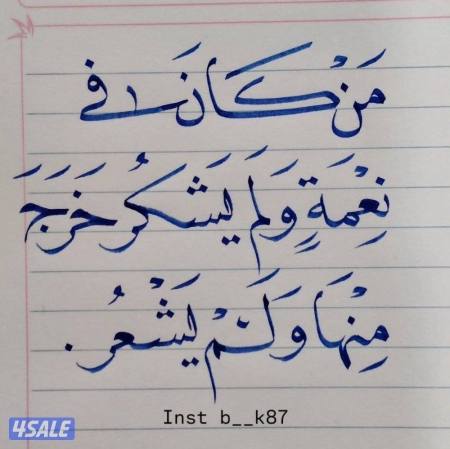 مَنْ كَانَ في
نِعْمَةٍ وَلَم يَشكُر خَرَجَ
مِنْهَا وَلَمْ يَشْعُر.
Inst b__k87
4SALE